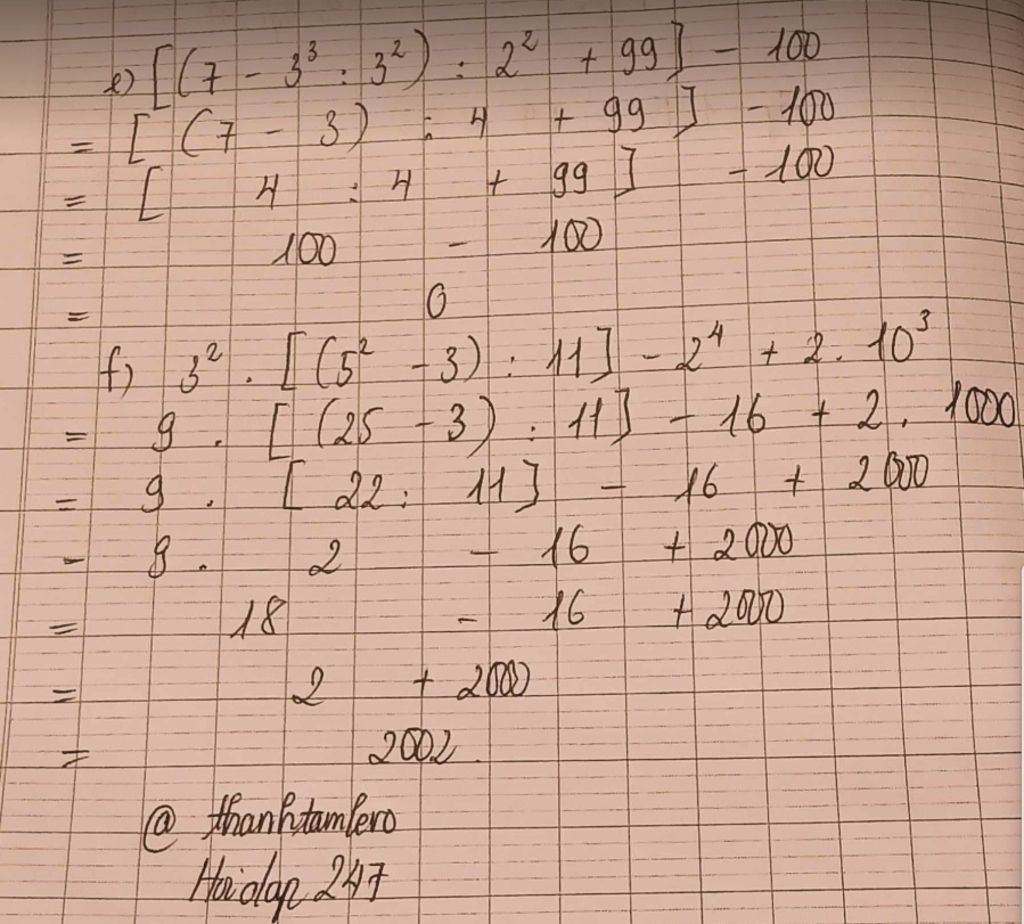 e) [(7 - 3³ : 3²) : 2² + 99] - 100
= [ (7 - 3) : 4 + 99 ] - 100
= [ 4 : 4 + 99 ] - 100
= 100 - 100
= 0
f) 3² . [(5² - 3) : 11] - 2⁴ + 2. 10³
= 9 . [ (25 - 3) : 11] - 16 + 2. 1000
= 9 . [ 22 : 11] - 16 + 2000
= 9 . 2 - 16 + 2000
= 18 - 16 + 2000
= 2 + 2000
= 2002
@ thanhtamlero
Hoidap 247